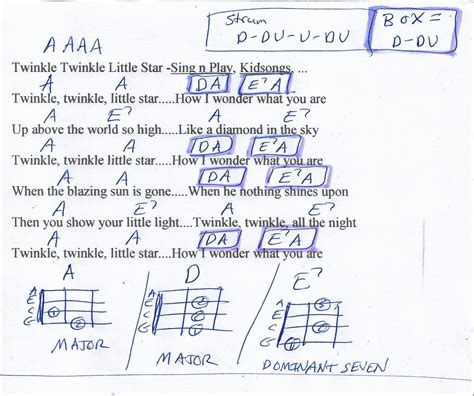 Strum BOX =
D-DU-U-DU D-DU
A A A A
Twinkle Twinkle Little Star -Sing n Play, Kidsongs, ...
A A DA E7A
Twinkle, twinkle, little star.....How I wonder what you are
A E7 A E7
Up above the world so high.....Like a diamond in the sky
A A DA E7A
Twinkle, twinkle little star.....How I wonder what you are
A A DA E7A
When the blazing sun is gone.....When he nothing shines upon
A E7 A E7
Then you show your little light....Twinkle, twinkle, all the night
A A DA E7A
Twinkle, twinkle, little star....How I wonder what you are
A D E7
A A A
E E E
C C C
G G G
MAJOR MAJOR DOMINANT SEVEN